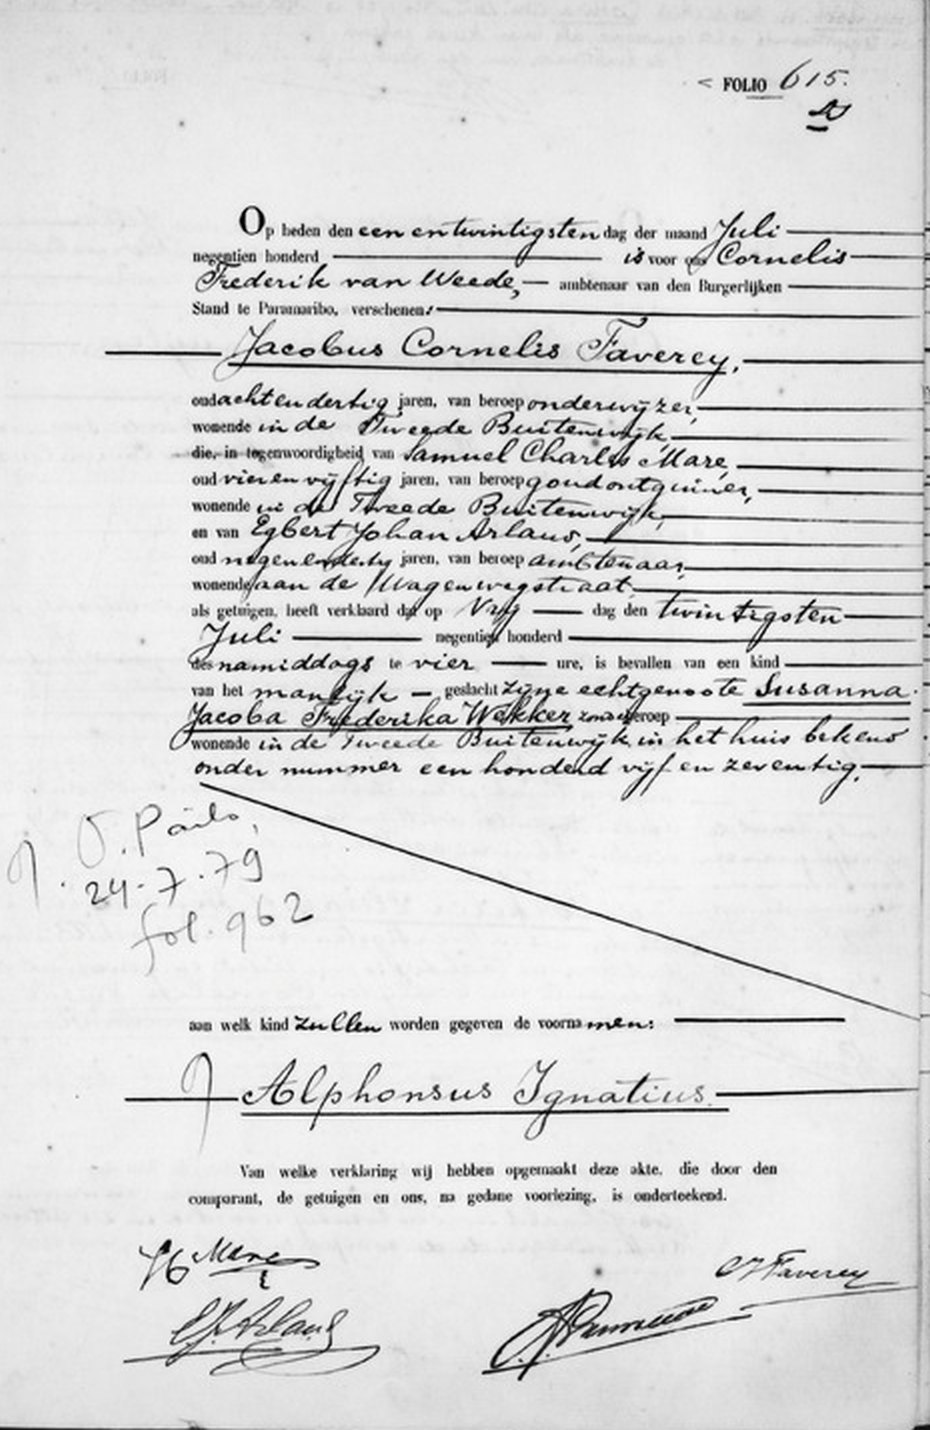 FOLIO 615.
Op heden den een en twintigsten dag der maand Juli
negentien honderd is voor ons Cornelis
Frederik van Weede, ambtenaar van den Burgerlijken
Stand te Paramaribo, verschenen:
Jacobus Cornelis Faverey,
oud acht en dertig jaren, van beroep onderwijzer,
wonende in de Tweede Buitenwijk,
die, in tegenwoordigheid van Samuel Charles Maré,
oud vier en vijftig jaren, van beroep
wonende in de Tweede Buitenwijk,
en van Egbert Johan Arlaud,
oud negen en dertig jaren, van beroep ambtenaar,
wonende aan de Wagenwegstraat,
als getuigen, heeft verklaard dat op Vrij dag den twintigsten
Juli negentien honderd
des namiddags te vier ure, is bevallen van een kind
van het manlijk geslacht zijne echtgenoote Susanna
Jacoba Frederika Wekker zonder beroep
wonende in de Tweede Buitenwijk, in het huis bekend
onder nummer een honderd vijf en zeventig.
24-7-79
fol. 962
aan welk kind zullen worden gegeven de voornamen:
Alphonsus Ignatius.
Van welke verklaring wij hebben opgemaakt deze akte, die door den
comparant, de getuigen en ons, na gedane voorlezing, is onderteekend.
Mare
Faverey
E.J. Arlaud